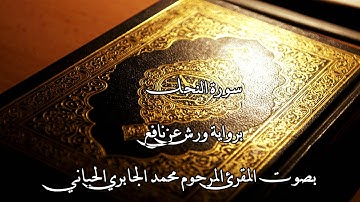 سورة النحل
برواية ورش عن نافع
بصوت المقرئ المرحوم محمد الجابري الحياني